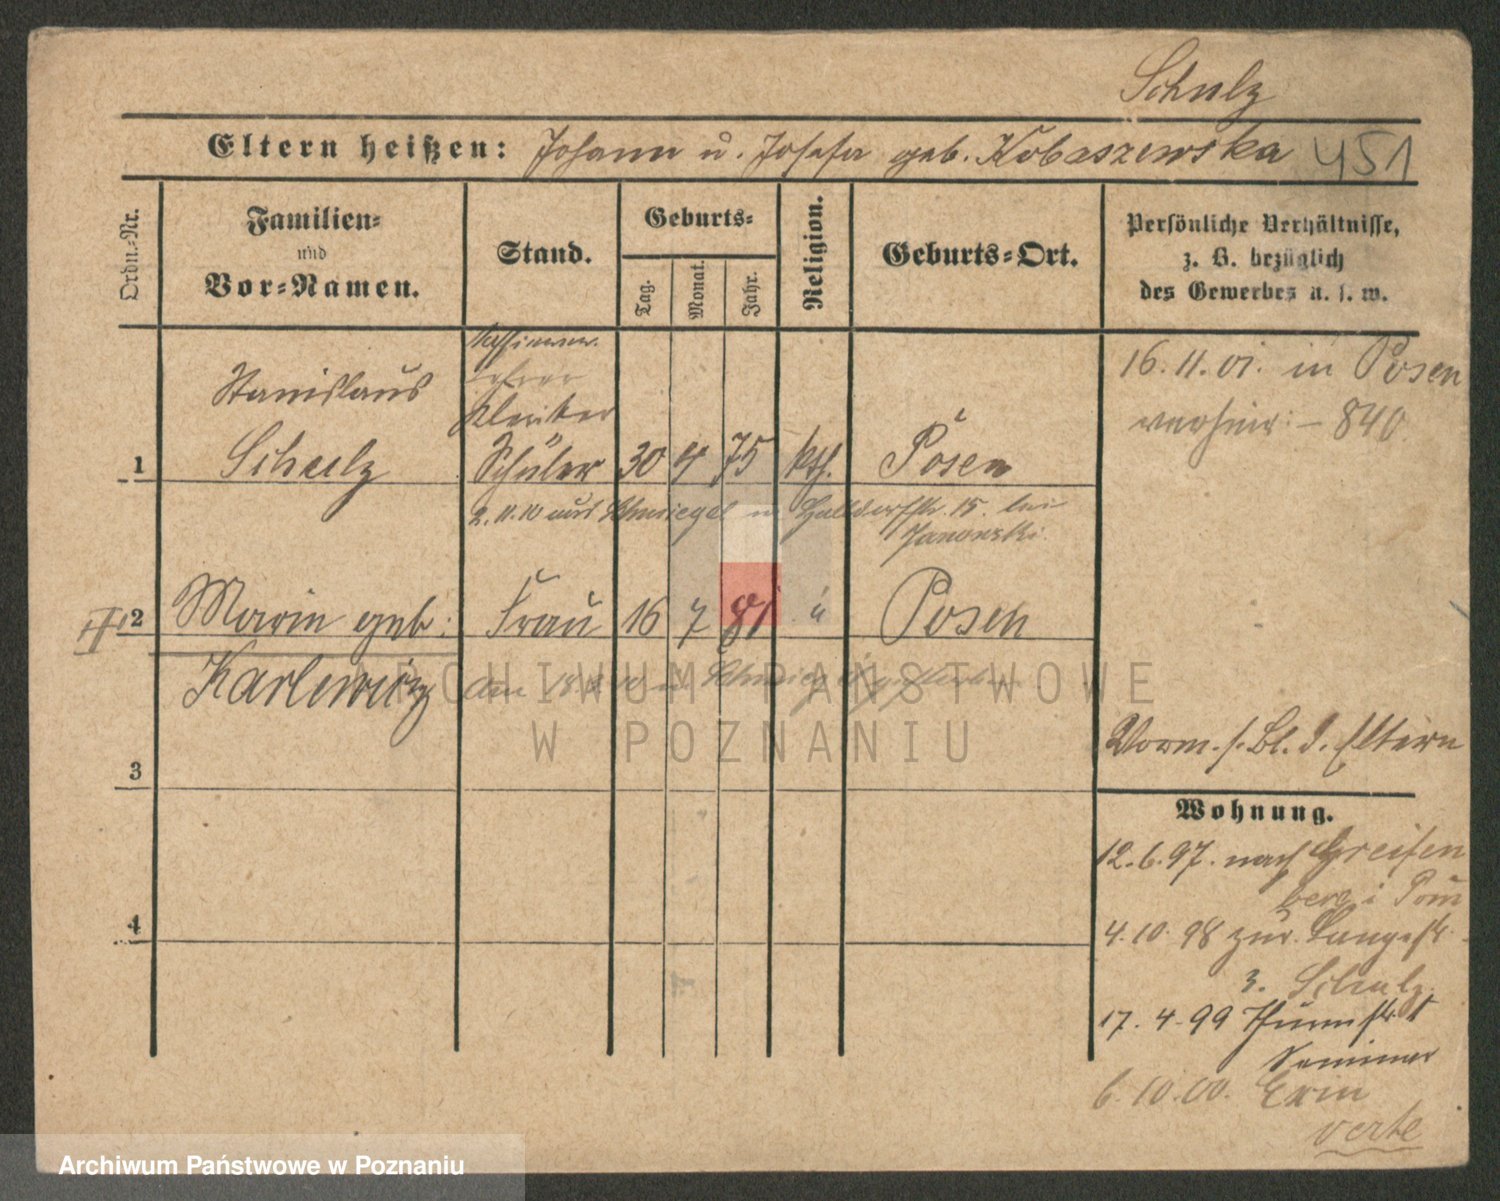 Schulz
Eltern heißen: Johann u. Josefa geb. Kobaszewska 451
Ordn.-Nr.
Familien-
und
Vor-Namen.
Stand.
Geburts-
Tag.
Monat.
Jahr.
Religion.
Geburts-Ort.
Persönliche Verhältnisse,
z. B. bezüglich
des Gewerbes u. s. w.
16. 11. 01. in Posen
verheir: - 840.
Stanislaus
Lehrer
Kleriker
1 Schulz Schüler 30 4 75 kth. Posen
2. 11. 10 aus Schmiegel n. 15. bei
Janowski.
2 Marie geb: Frau 16 7 81 " Posen
Karlewicz
ARCHIWUM PAŃSTWOWE
W POZNANIU
Vorm. s. Bl. d. Eltern
3
Wohnung.
12. 6. 97. nach Greifen
berg i Pom
4
4. 10. 98 zur. Langestr.
3. Schulz.
17. 4. 99 Thurmstr 1
Seminar
6. 10. 00. Exin
verte
Archiwum Państwowe w Poznaniu